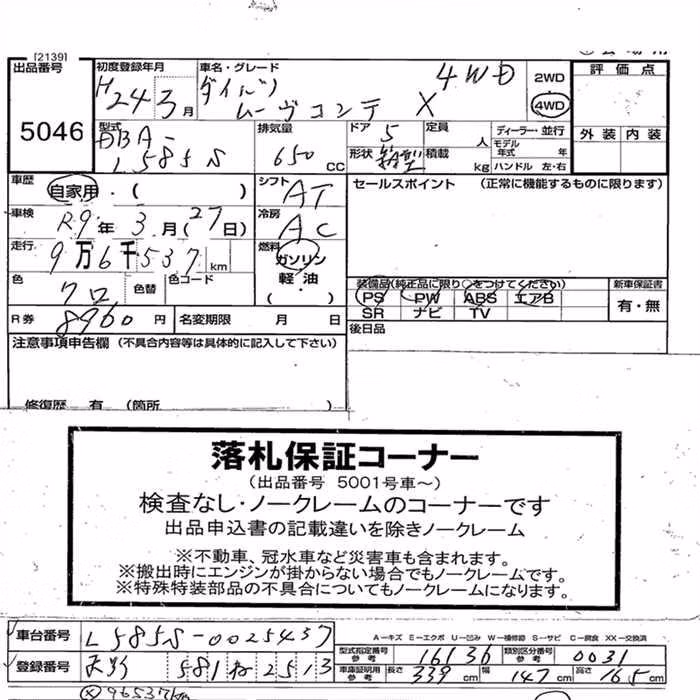 [2139]
出品番号 5046
初度登録年月 H24年3月
車名・グレード ダイハツ ムーヴコンテ X 4WD
2WD
4WD
評価点
外装 内装
型式 DBA-L585S
排気量 650 CC
ドア 5
形状 箱型
定員 人
積載 kg
ディーラー・並行
モデル年式 年
ハンドル 左・右
車歴 自家用・( )
シフト AT
セールスポイント (正常に機能するものに限ります)
車検 R9年3月(27日)
冷房 AC
走行 9万6千537km
燃料 ガンリン
軽・油
( )
色 クロ 色替 色コード
装備品(純正品に限り○をつけてください)
PS PW ABS エアB
SR ナビ TV
新車保証書
有・無
R券 8960円 名変期限 月 日
後日品
注意事項申告欄 (不具合内容等は具体的に記入して下さい)
修復歴 有 (箇所
落札保証コーナー
(出品番号 5001号車〜)
検査なし・ノークレームのコーナーです
出品申込書の記載違いを除きノークレーム
※不動車、冠水車など災害車も含まれます。
※搬出時にエンジンが掛からない場合でもノークレームです。
※特殊特装部品の不具合についてもノークレームになります。
車台番号 L585S-0025437
A-キズ E-エクボ U-凹み W-補修跡 S-サビ C-腐食 XX-交換済
型式指定番号 参考 16136 類別区分番号 参考 0031
登録番号 581 ね 2513
車庫証明用 参考 長さ 339cm 幅 147cm 高さ 165cm
96537km